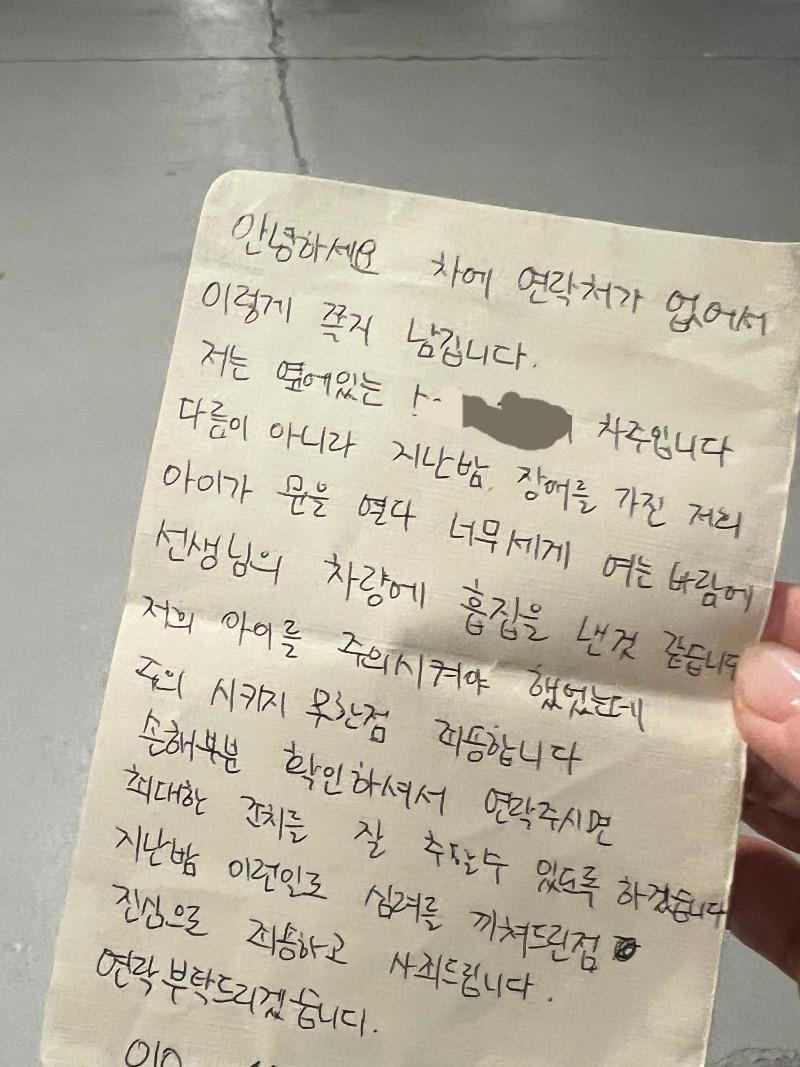 안녕하세요 차에 연락처가 없어서
이렇게 쪽지 남깁니다.
저는 옆에있는 차주입니다
다름이 아니라 지난밤, 장애를 가진 저희
아이가 문을 열다 너무세게 여는 바람에
선생님의 차량에 흡집을 낸것 같습니다
저희 아이를 주의시켜야 했었는데
주의 시키지 못한점 죄송합니다
손해부분 확인하셔서 연락주시면
최대한 조치를 잘 있도록 하겠습니다
지난밤 이런일로 심려를 끼쳐드린점
진심으로 죄송하고 사죄드립니다.
연락부탁드리겠습니다.
010